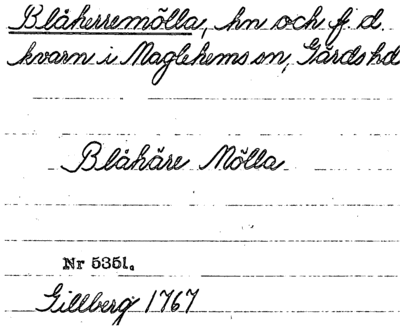 Blåherremölla, hn och f. d.
kvarn i Maglehems sn, Gärds hd
Blåhäre Mölla
Nr 5351.
Gillberg 1767